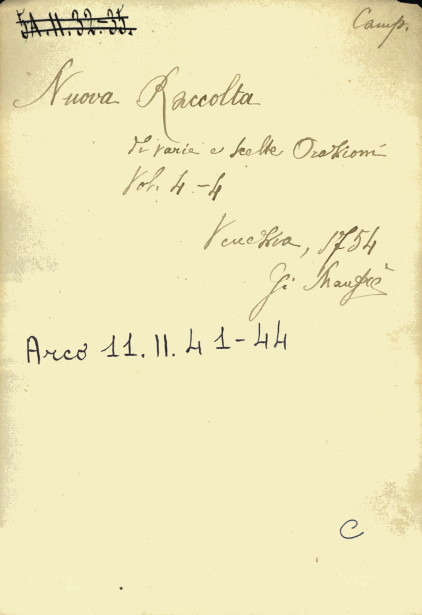 5A.II.32-35.
Camp.
Nuova Raccolta
di varie e scelte Orazioni
Vol. 4 - 4
Venezia, 1754
Gi Manfrè
Arco 11. II. 4 1-44
C